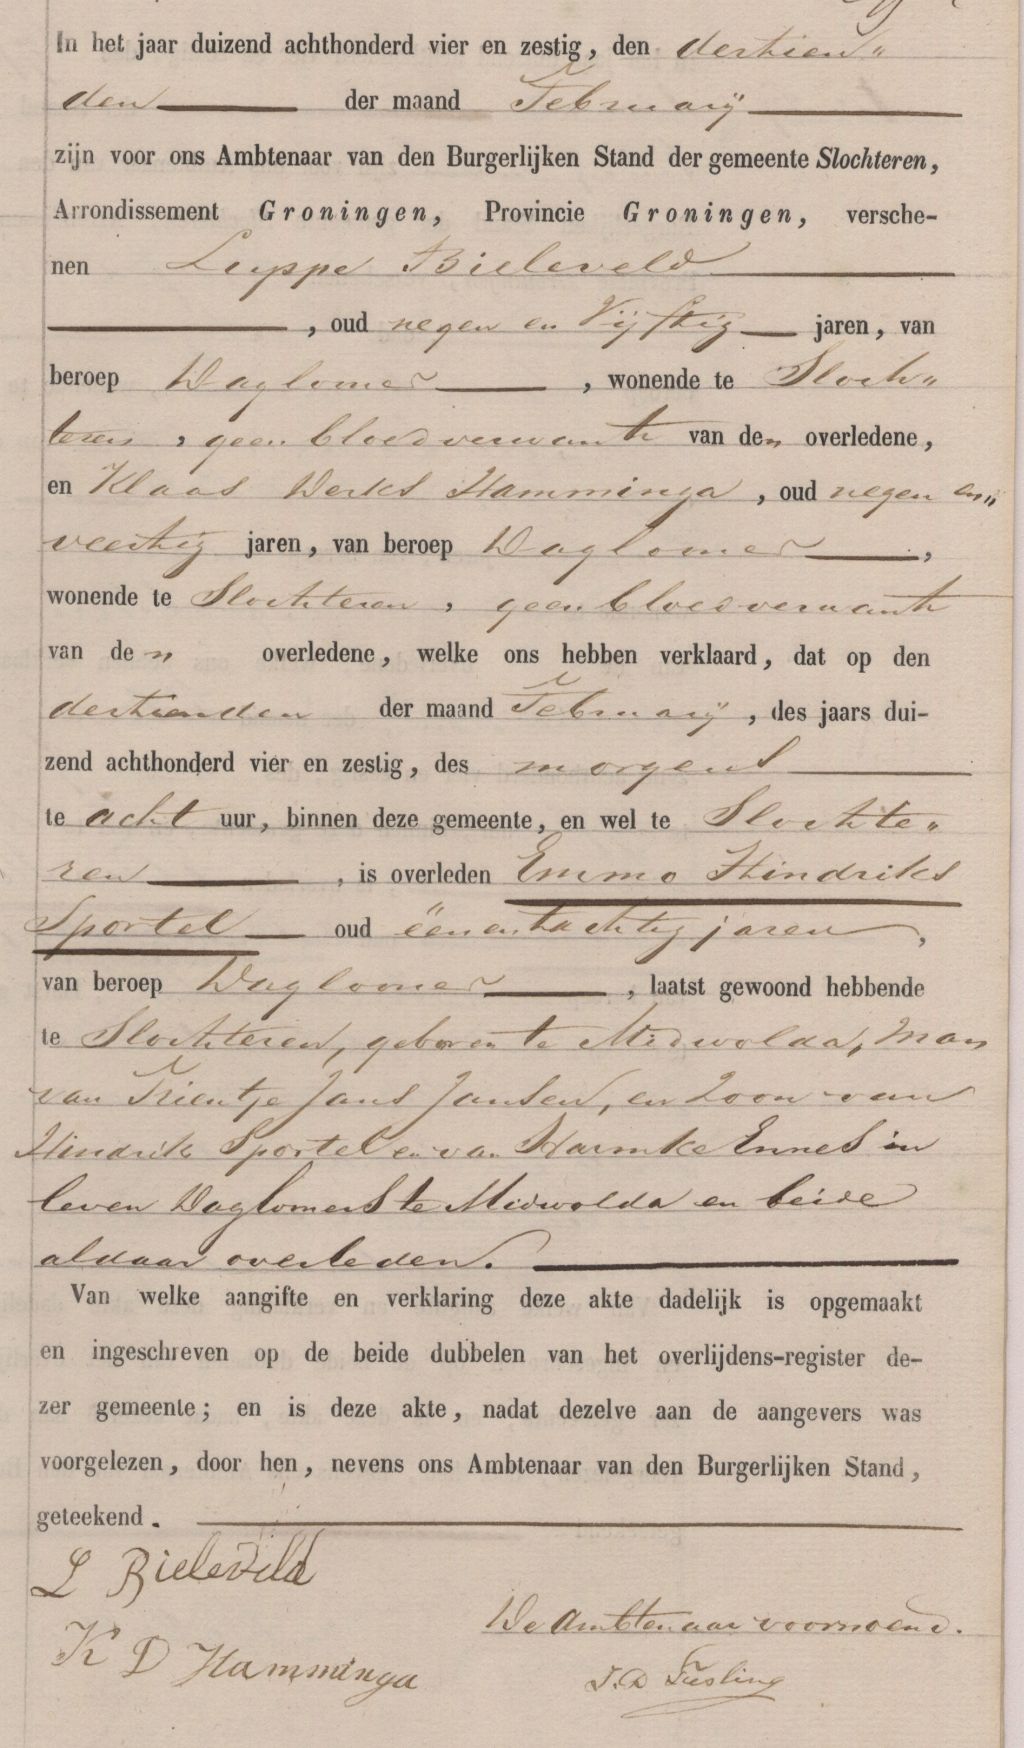 In het jaar duizend achthonderd vier en zestig, den dertien„
den der maand Februarij
zijn voor ons Ambtenaar van den Burgerlijken Stand der gemeente Slochteren,
Arrondissement Groningen, Provincie Groningen, versche-
nen Luppe Bieleveld
, oud negen en Vijftig jaren, van
beroep Daglooner, wonende te Sloch„
teren, geen bloedverwant van den overledene,
en Klaas Derks Hamminga, oud negen en„
veertig jaren, van beroep Daglooner,
wonende te Slochteren, geen bloedverwant
van den overledene, welke ons hebben verklaard, dat op den
dertienden der maand Februarij, des jaars dui-
zend achthonderd vier en zestig, des morgens
te acht uur, binnen deze gemeente, en wel te Slochte„
ren, is overleden Emmo Hindriks
Sportel oud ëënentachtig jaren,
van beroep Daglooner, laatst gewoond hebbende
te Slochteren, geboren te Midwolda, man
van Trientje Jans Jansen, en Zoon van
Hindrik Sportel en van Harmke Ennes in
leven Dagloners te Midwolda en beide
aldaar overleden.
Van welke aangifte en verklaring deze akte dadelijk is opgemaakt
en ingeschreven op de beide dubbelen van het overlijdens-register de-
zer gemeente; en is deze akte, nadat dezelve aan de aangevers was
voorgelezen, door hen, nevens ons Ambtenaar van den Burgerlijken Stand,
geteekend.
L Bieleveld
De Ambtenaar voornoemd.
K D Hamminga